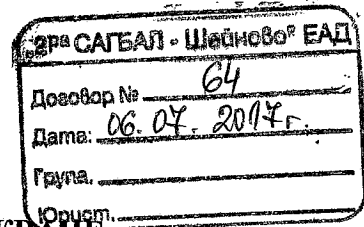 „2ра САГБАЛ - Шейново" ЕАД
Договор № 64
Дата: 06. 07. 2017г.
Група.
Юрист.